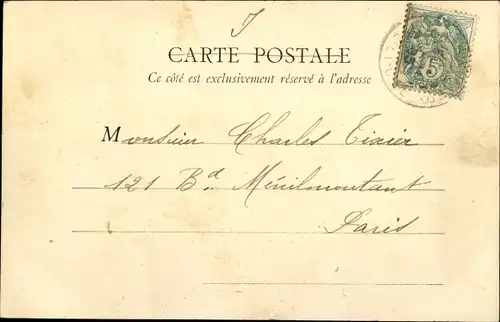 CARTE POSTALE
Ce côté est exclusivement réservé à l'adresse
5
Monsieur Charles Tixier
121 Bd. Ménilmontant
Paris